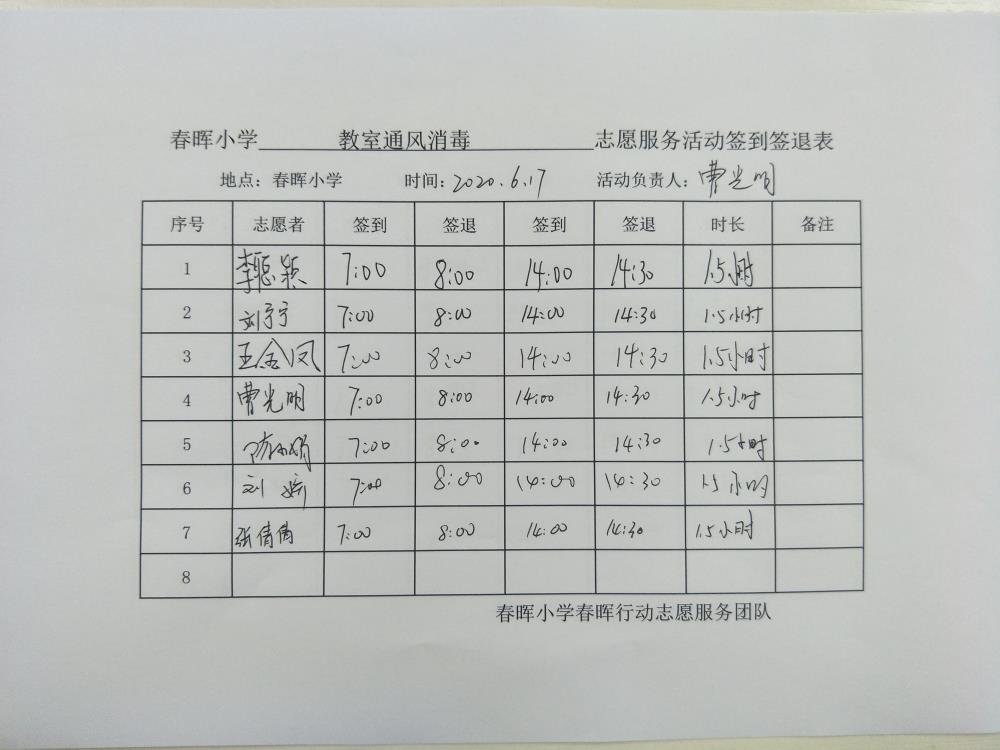 春晖小学 教室通风消毒 志愿服务活动签到签退表
地点：春晖小学 时间：2020.6.17 活动负责人：曹光明
序号 志愿者 签到 签退 签到 签退 时长 备注
1 李聪颖 7:00 8:00 14:00 14:30 1.5小时
2 刘宁宁 7:00 8:00 14:00 14:30 1.5小时
3 王金凤 7:00 8:00 14:00 14:30 1.5小时
4 曹光明 7:00 8:00 14:00 14:30 1.5小时
5 7:00 8:00 14:00 14:30 1.5小时
6 刘 7:00 8:00 14:00 14:30 1.5小时
7 张倩倩 7:00 8:00 14:00 14:30 1.5小时
8
春晖小学春晖行动志愿服务团队